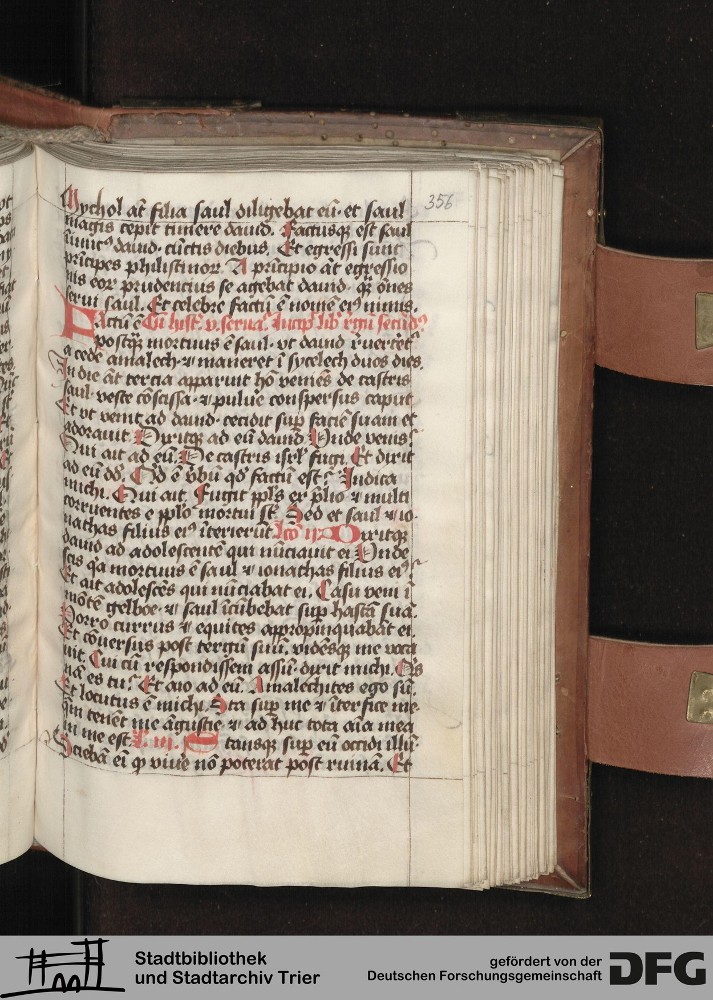 Mychol at̄ filia saul diligebat eū· et saul
magis cepit timere dauid. Factusqꝫ est saul
inimicꝰ dauid· cūctis diebus. Et egressi sunt
prīcipes philistinoꝝ. A prīcipio at̄ egressio
nis eoꝝ prudencius se agebat dauid· qͣꝫ ōnes
serui saul. Et celebre factū ē nomē eiꝰ nimis.
Factū ē
postqͣꝫ mortuus ē saul· vt dauid
a cede amalech· ⁊ maneret ī sycelech duos dies.
In die at̄ tercia apparuit hō veniēs de castris
saul· veste cōscissa· ⁊ puluē conspersus caput
Et vt venit ad dauid· cecidit suꝑ faciē suam et
adorauit. Dixitqꝫ ad eū dauid. Vnde venis?
Qui ait ad eū. De castris isrl̄ fugi. Et dixit
ad eū dd̄. Qd̄ ē vbū qd̄ factū est? Indica
michi. Qui ait. Fugit ppl̄s ex p̄lio ⁊ multi
corruentes e pplo mortui st̄. Sed et saul ⁊ io
nathas filius eiꝰ īterierūt. Dixitqꝫ
dauid ad adolescentē qui nūciauit ei. Vnde
scis qa mortuus ē saul ⁊ ionathas filius eiꝰ?
Et ait adolescēs qui nūtiabat ei. Casu veni ī
mōtē gelboe· ⁊ saul īcūbebat suꝑ hastā suā.
Porro currus ⁊ equites appropinquabāt ei.
Et cōuersus post tergū suū· vidēsqꝫ me voca
uit. Cui cū respondissem assū· dixit michi. Qͥs
nā es tu? Et aio ad eū. Amalechites ego sū.
Et locutus ē michi. Sta suꝑ me ⁊ īterfice me·
qm̄ tenēt me āgustie· ⁊ ad huc tota aīa mea
in me est. Stansqꝫ suꝑ eū occidi illū·
Sciebā eī ꝙ viue nō poterat post ruinā. Et
356
Stadtbibliothek
und Stadtarchiv Trier
gefördert von der
Deutschen Forschungsgemeinschaft
DFG